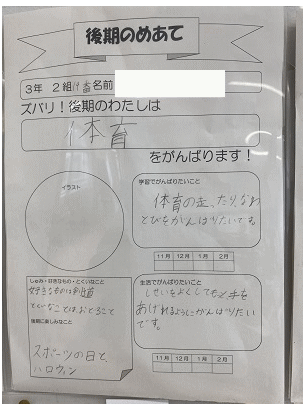 後期のめあて
3年 2組 番名前
ズバリ！後期のわたしは
体育
をがんばります！
イラスト
学習でがんばりたいこと
体育の
とびをがんばりたいです。
11月 12月 1月 2月
しゅみ・好きなもの・とくいなこと
好きなものは
とくいなことはおどること
後期に楽しみなこと
スポーツの日と、
ハロウィン
生活でがんばりたいこと
しせいをよくしても
あげれるようにがんばりたい
です。
11月 12月 1月 2月